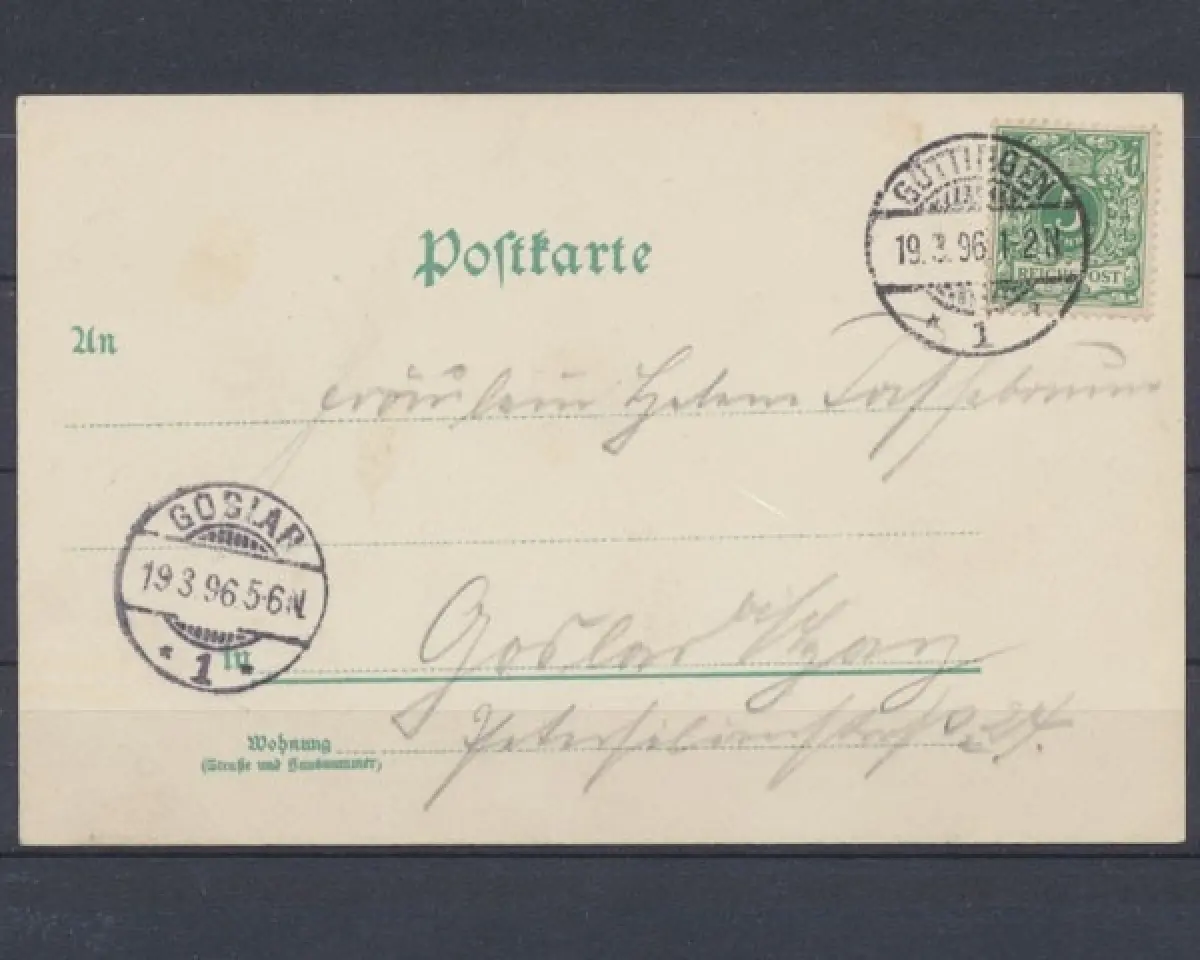 Postkarte
GÖTTINGEN
19.3.96.1-2N
* 1 *
5
REICHSPOST
An
Fräulein Helene
GOSLAR
19.3.96.5-6N
* 1 *
In Goslar a/Harz
Wohnung
(Straße und Hausnummer)
Petersilienstraße 24.